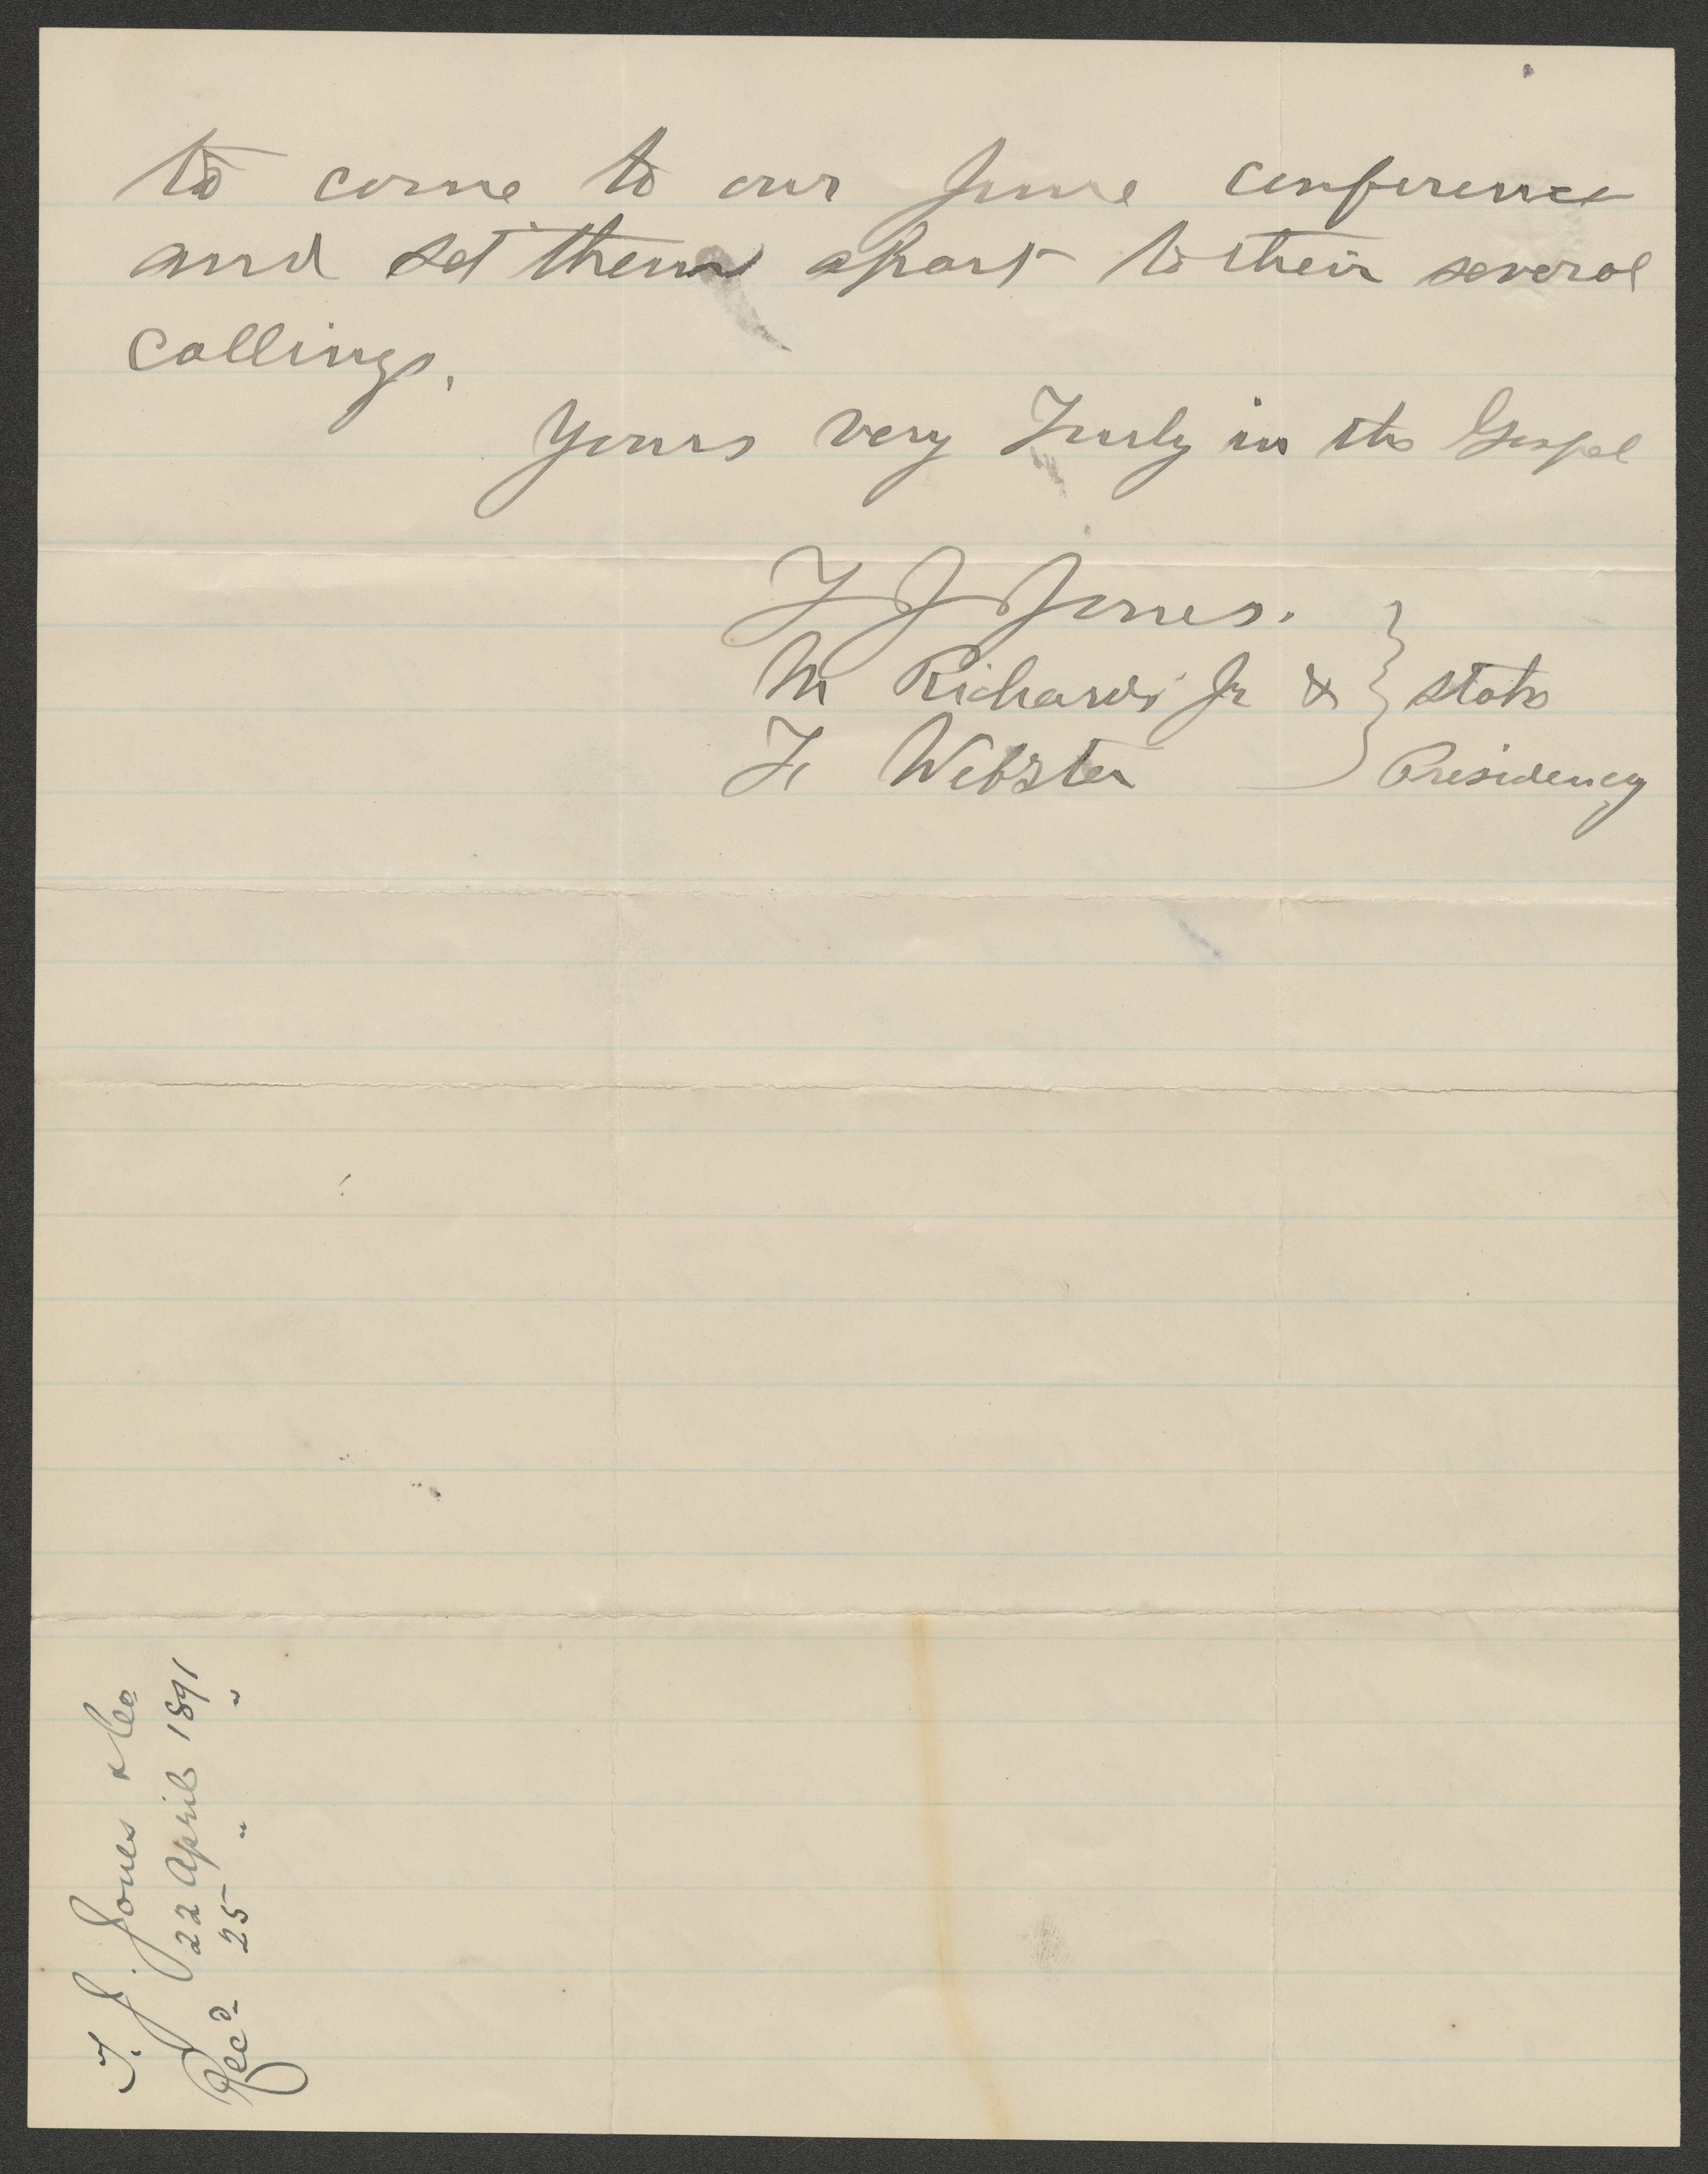 to come to our June conference
and set them apart to their several
callings.
Yours very Truly in the Gospel
T J Jones.
M Richards Jr & } Stake
F. Webster } Presidency
T. J. Jones & Co
22 April 1891
Recd. 25 " "